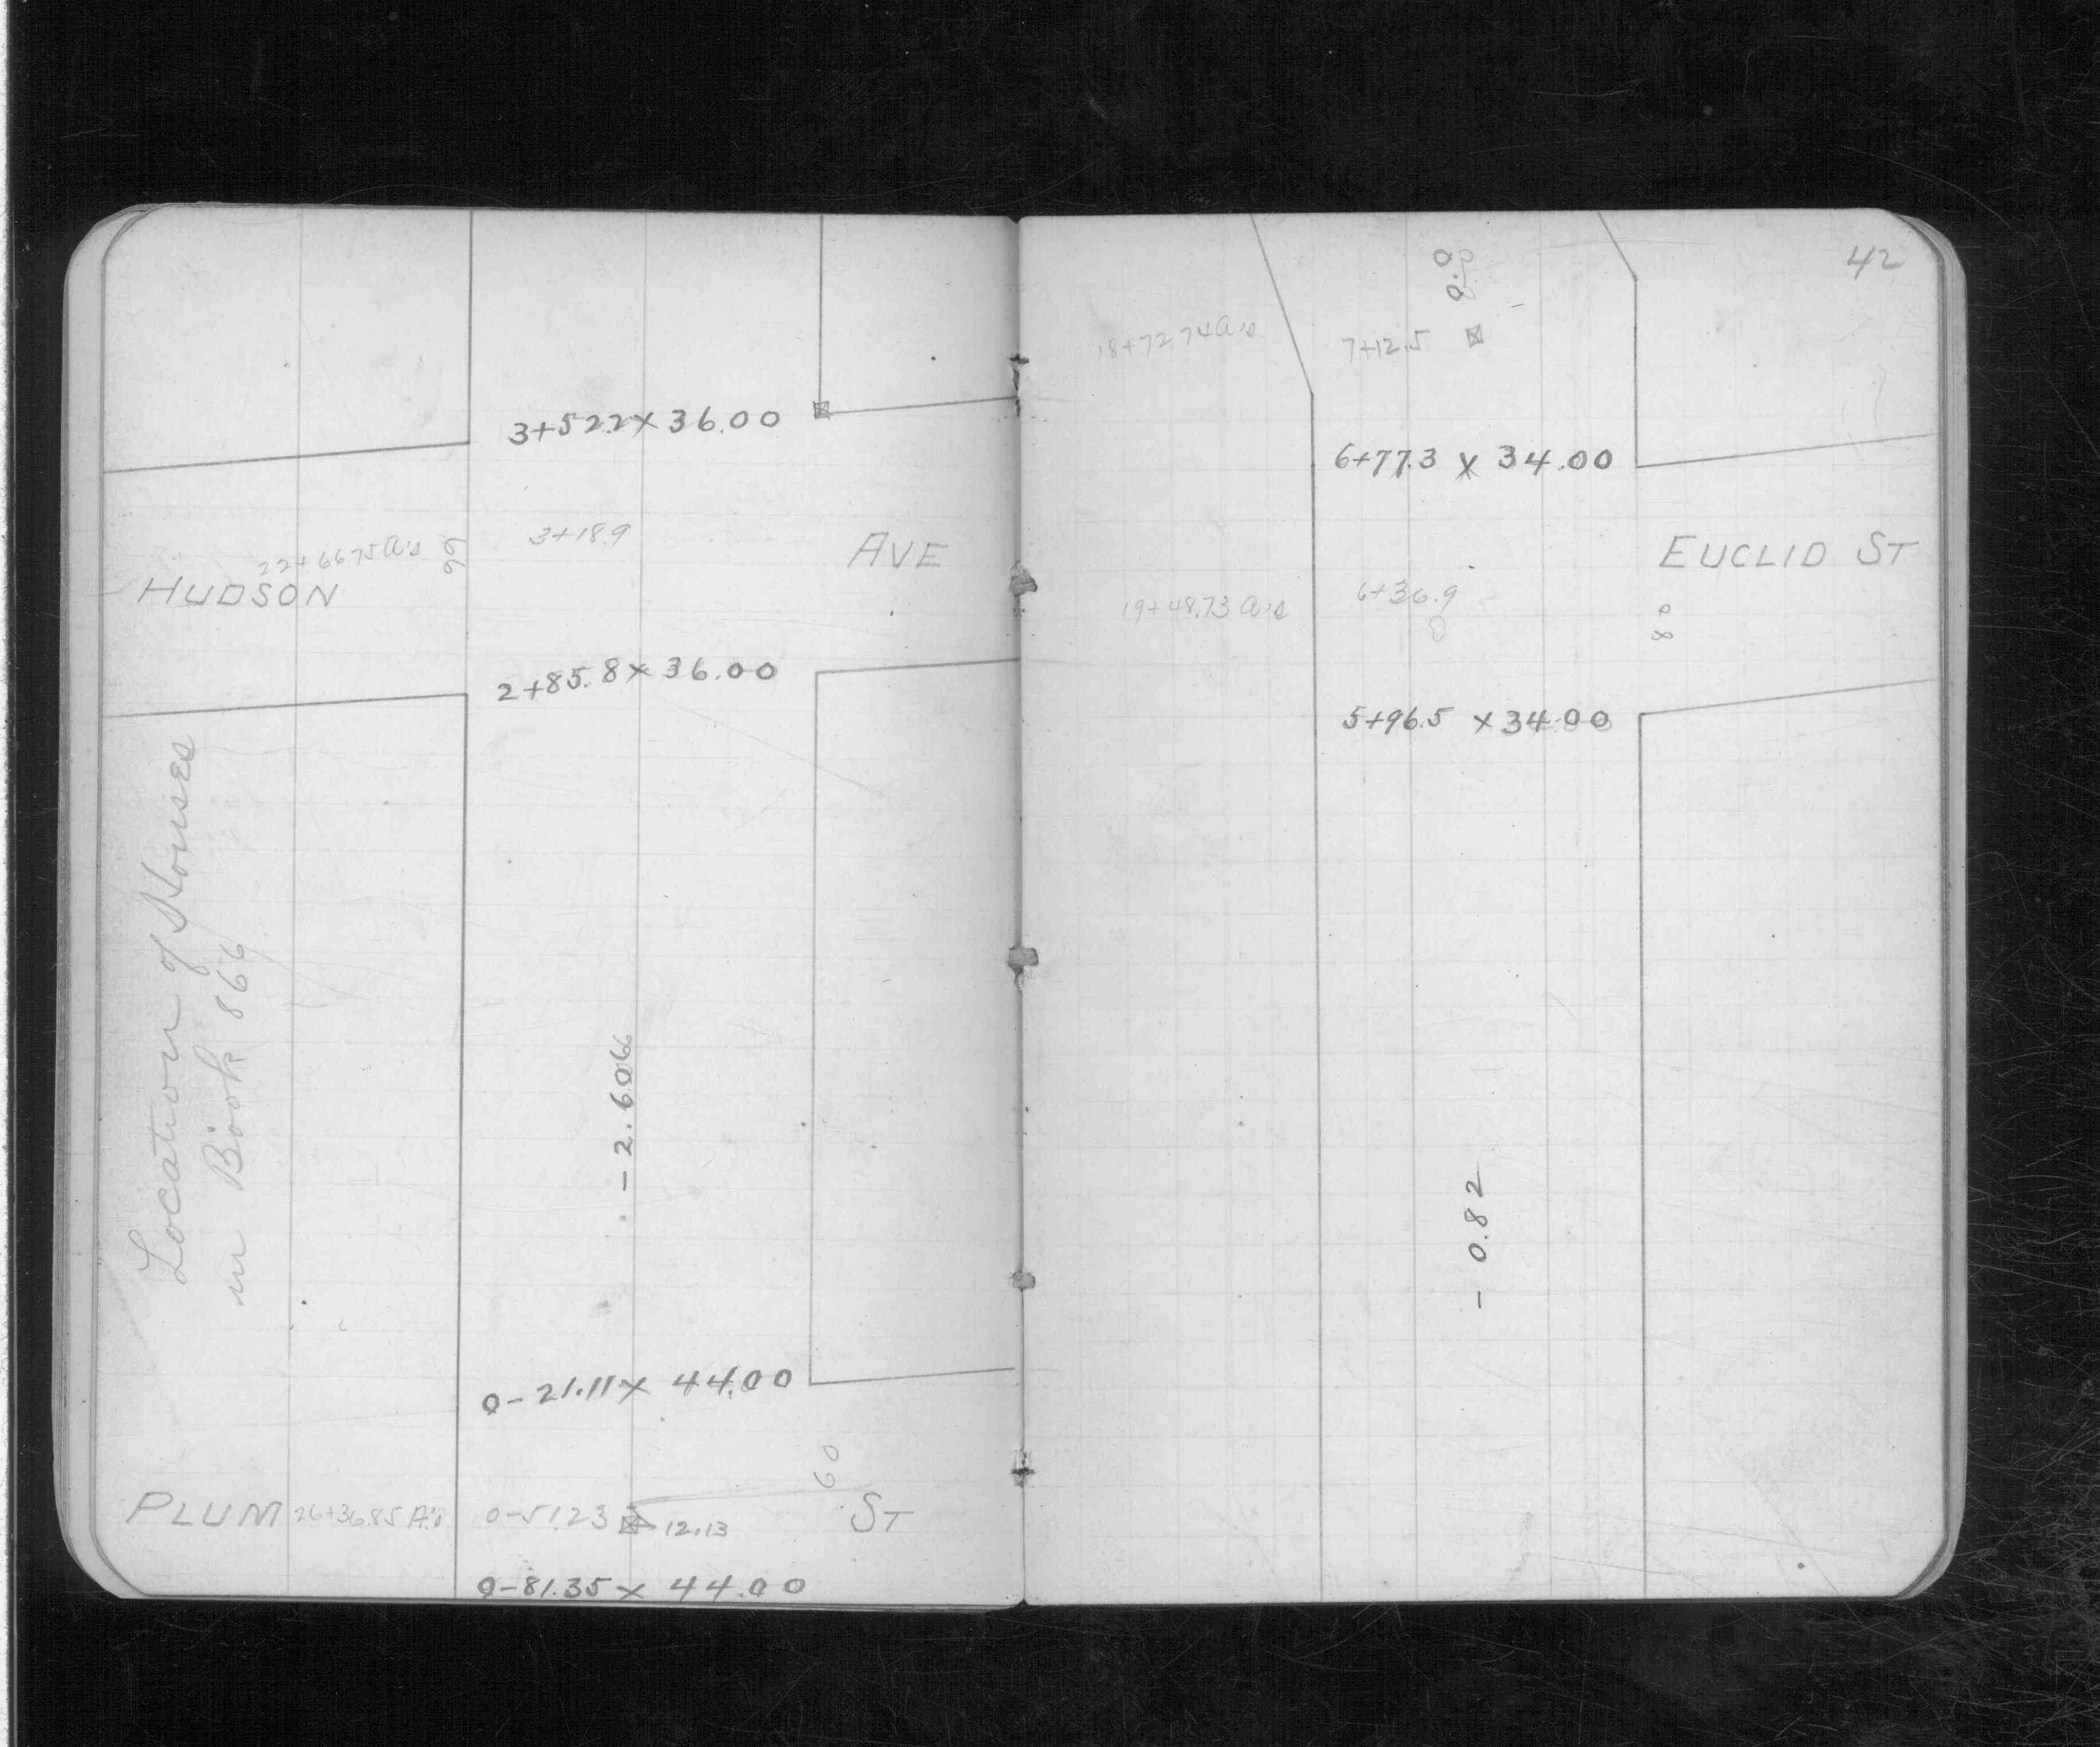 3+52.2 x 36.00
3+18.9
22+66.75 A's
66
HUDSON AVE
2+85.8 x 36.00
Location of Houses
in Book 866
- 2.606
0-21.11 x 44.00
60
PLUM 26+36.85 A's 0-51.23 12.13 ST
0-81.35 x 44.00
42
0.0
18+72.74 A's 7+12.5
6+77.3 x 34.00
EUCLID ST
19+48.73 A's 6+36.9
80
5+96.5 x 34.00
- 0.82